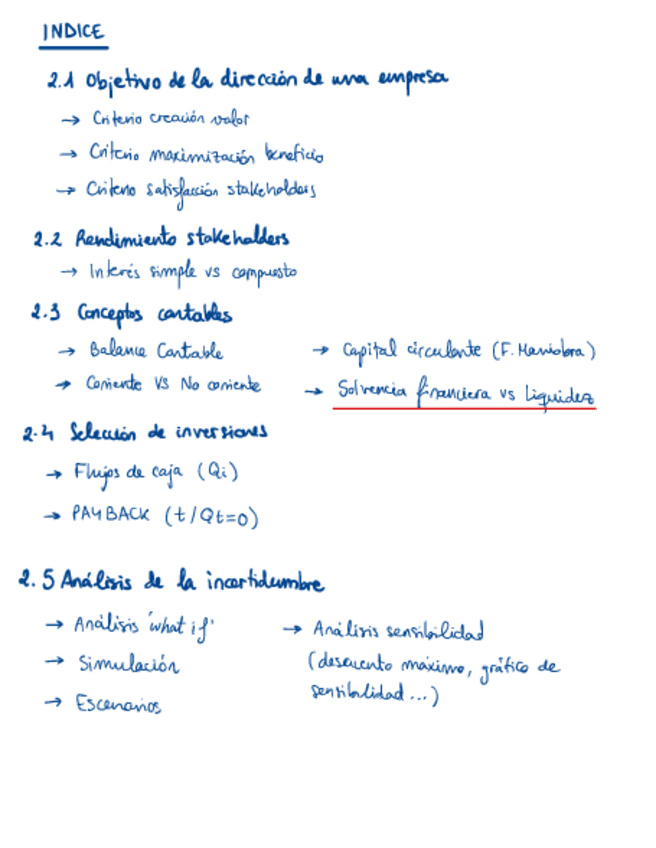 INDICE
2.1 Objetivo de la dirección de una empresa
→ Criterio creación valor
→ Criterio maximización beneficio
→ Criterio satisfacción stakeholders
2.2 Rendimiento stakeholders
→ Interés simple vs compuesto
2.3 Conceptos contables
→ Balance Contable → Capital circulante (F. Maniobra)
→ Corriente VS No corriente → Solvencia financiera vs Liquidez
2.4 Selección de inversiones
→ Flujos de caja (Qi)
→ PAYBACK (t/Qt=0)
2.5 Análisis de la incertidumbre
→ Análisis 'what if' → Análisis sensibilidad
→ Simulación (descuento máximo, gráfico de
→ Escenarios sensibilidad...)